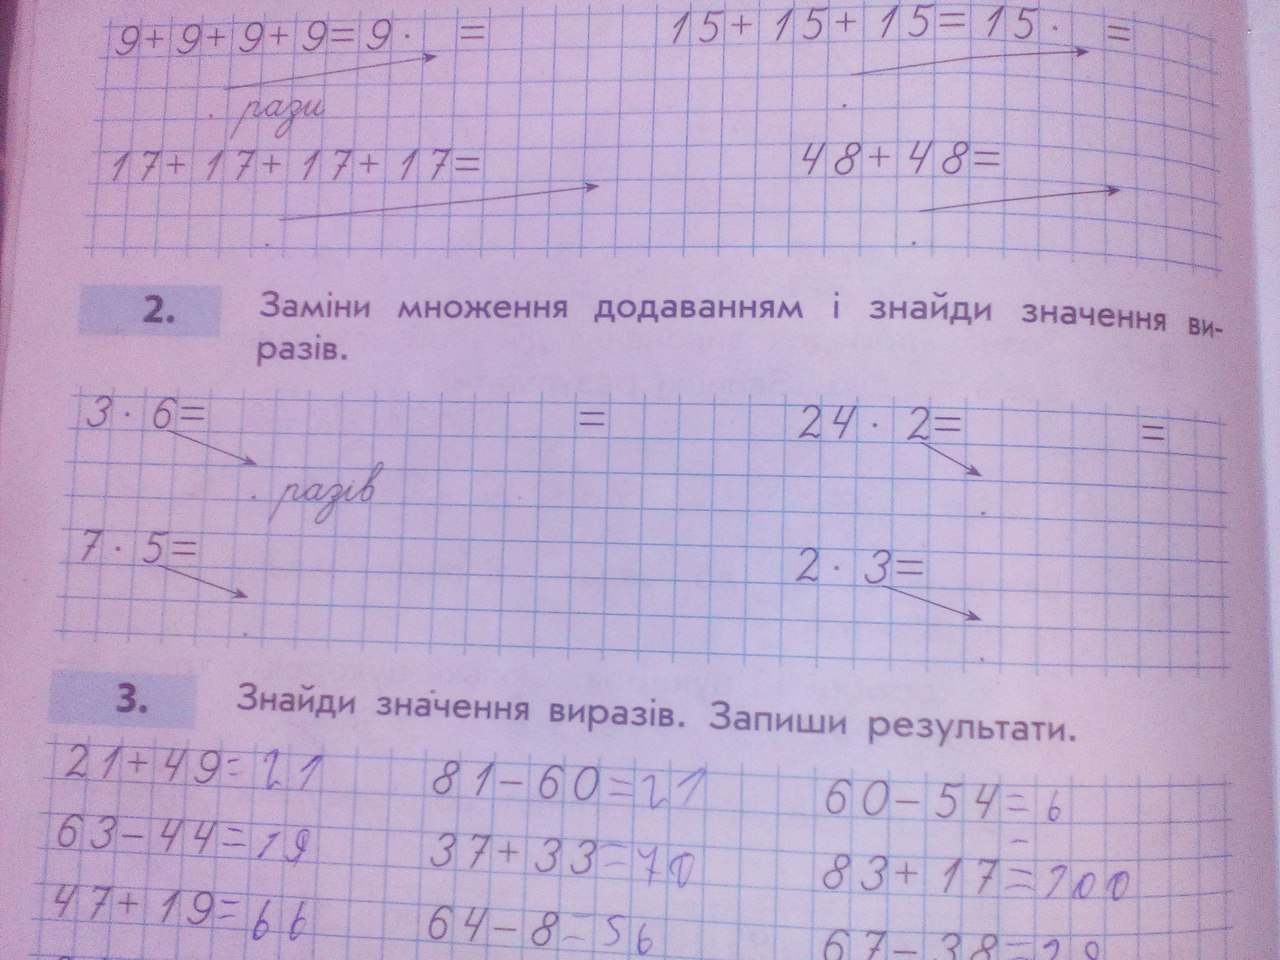 9+9+9+9=9· = 15+15+15=15· =
. рази .
17+17+17+17= 48+48=
. .
2. Заміни множення додаванням і знайди значення ви-
разів.
3·6= = 24·2= =
. разів .
7·5= 2·3=
. .
3. Знайди значення виразів. Запиши результати.
21+49=21 81-60=21 60-54=6
63-44=19 37+33=70 83+17=100
47+19=66 64-8=56 67-38=29